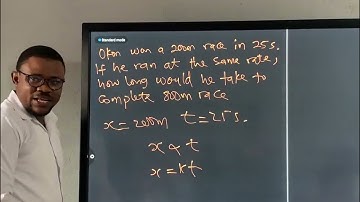 Standard mode
Okon won a 200m race in 25s.
If he ran at the same rate,
how long would he take to
complete 800m race
x = 200m t = 25s.
x α t
x = kt